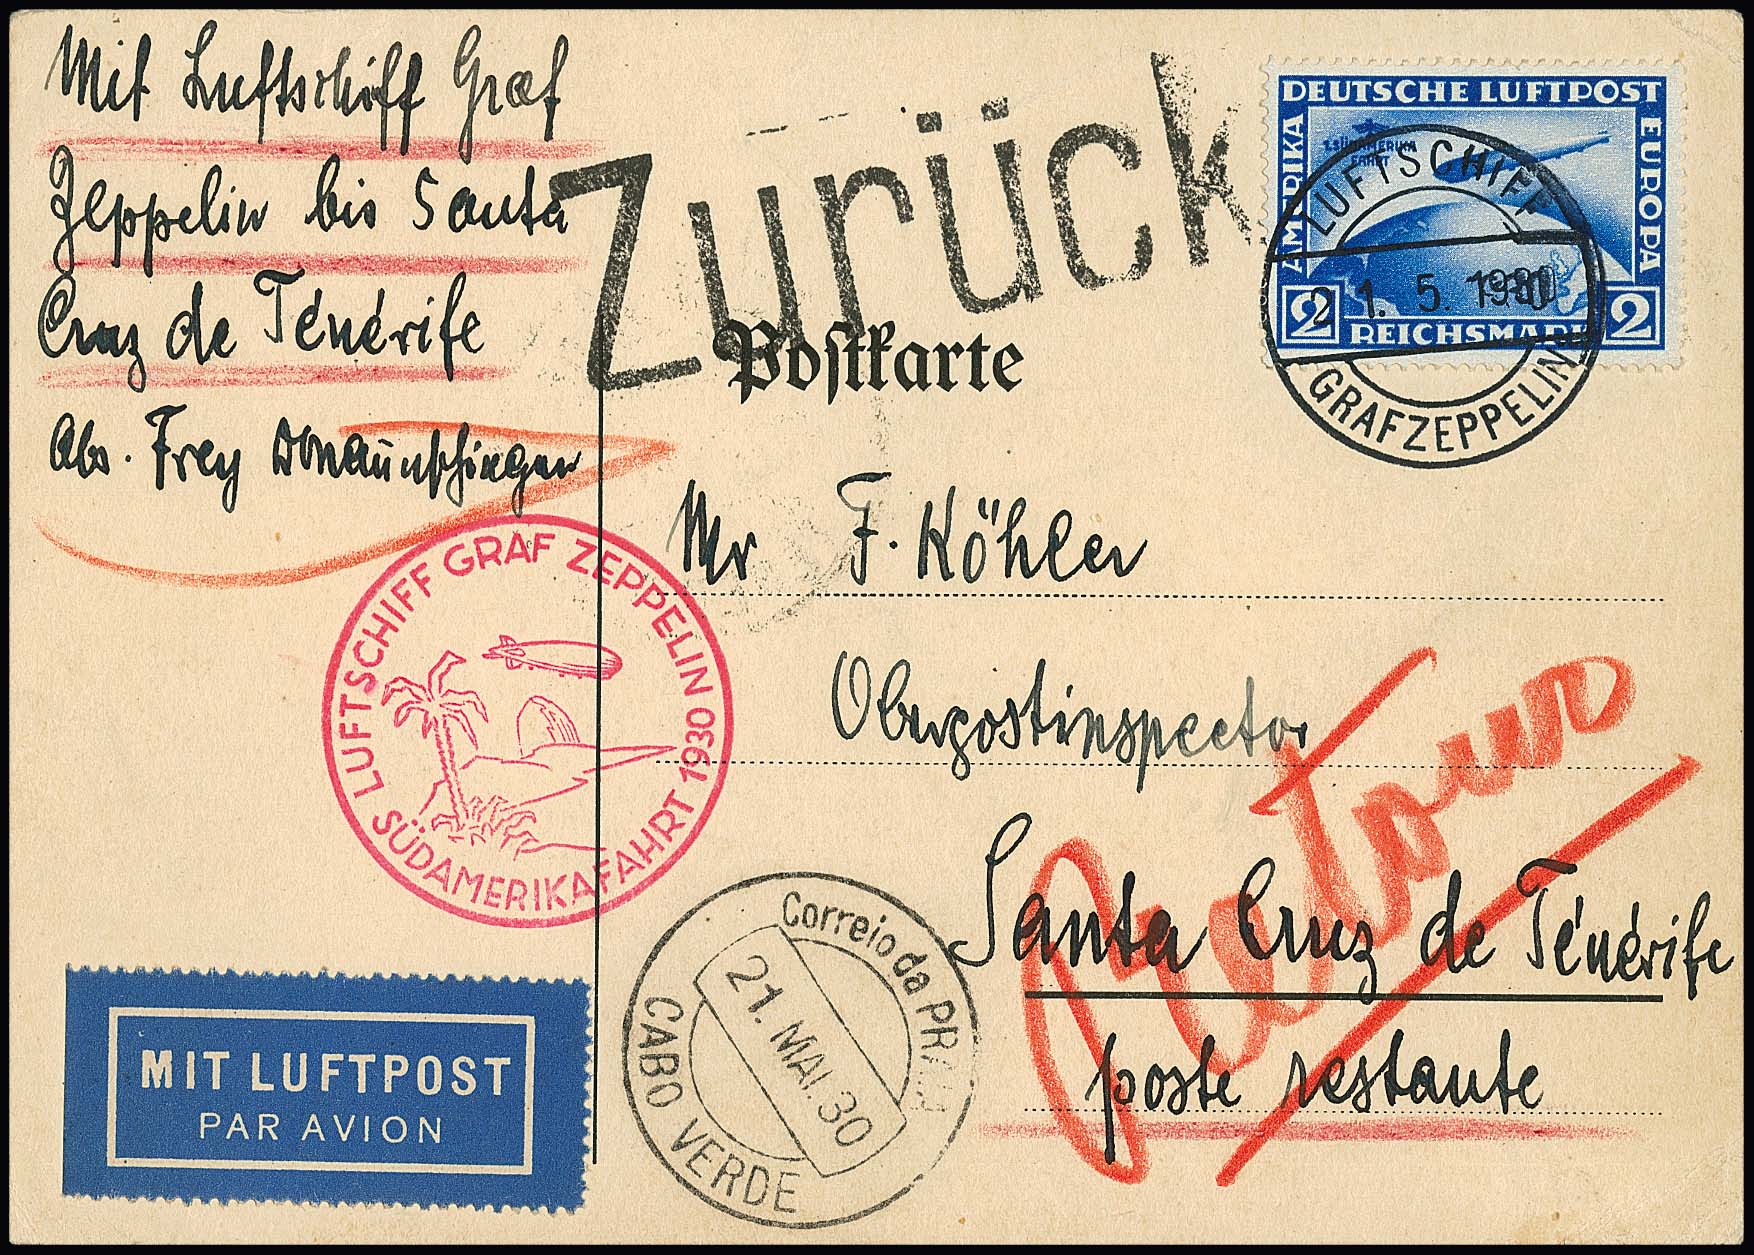 Mit Luftschiff Graf
Zeppelin bis Santa
Cruz de Ténérife
Abs. Frey Donaueschingen
Zurück
DEUTSCHE LUFTPOST
AMERIKA
EUROPA
1. SÜDAMERIKA
FAHRT
2 REICHSMARK 2
LUFTSCHIFF
21. 5. 1930
GRAF ZEPPELIN
Postkarte
Mr F. Köhler
Oberpostinspector
Santa Cruz de Ténérife
poste restante
Retour
LUFTSCHIFF GRAF ZEPPELIN
SÜDAMERIKAFAHRT 1930
Correio da PRAIA
21. MAI. 30
CABO VERDE
MIT LUFTPOST
PAR AVION